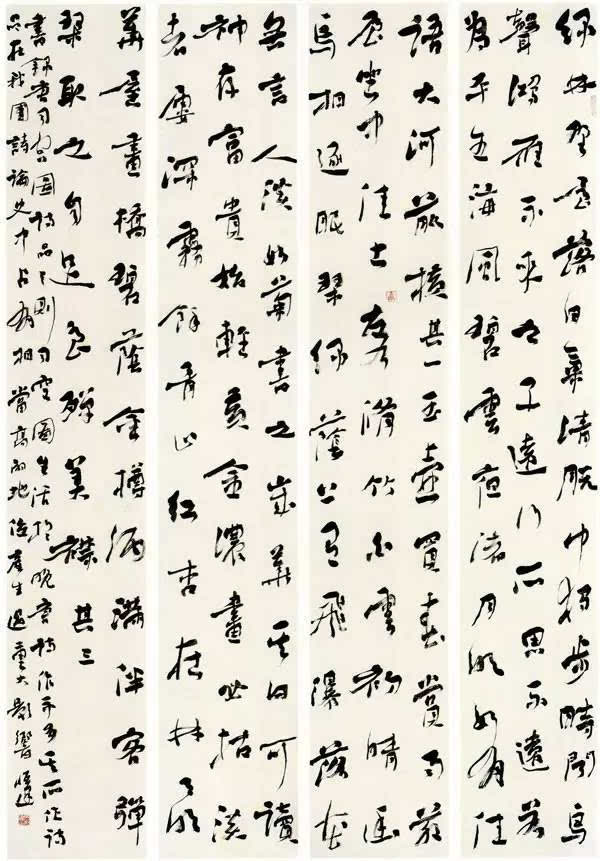 綠林野屋落日氣清脫巾獨步時聞鳥
聲鴻雁不來之子遠行所思不遠若
為平生海風碧雲夜渚月明如有佳
語大河前橫其一玉壺買春賞雨茅
屋坐中佳士左右脩竹白雲初晴幽
鳥相逐眠琴綠蔭上有飛瀑落花
無言人淡如菊書之歲華其曰可讀
神存富貴始輕黃金濃盡必枯淡
者屢深霧餘青山紅杏在林月明
華屋畫橋碧蔭金樽酒滿伴客彈
琴取之自足良殫美襟其三
書錄唐司空圖詩品三則司空圖生活於晚唐詩作不多其所作詩
品在我國詩論史中占有相當高的地位產生過重大影響